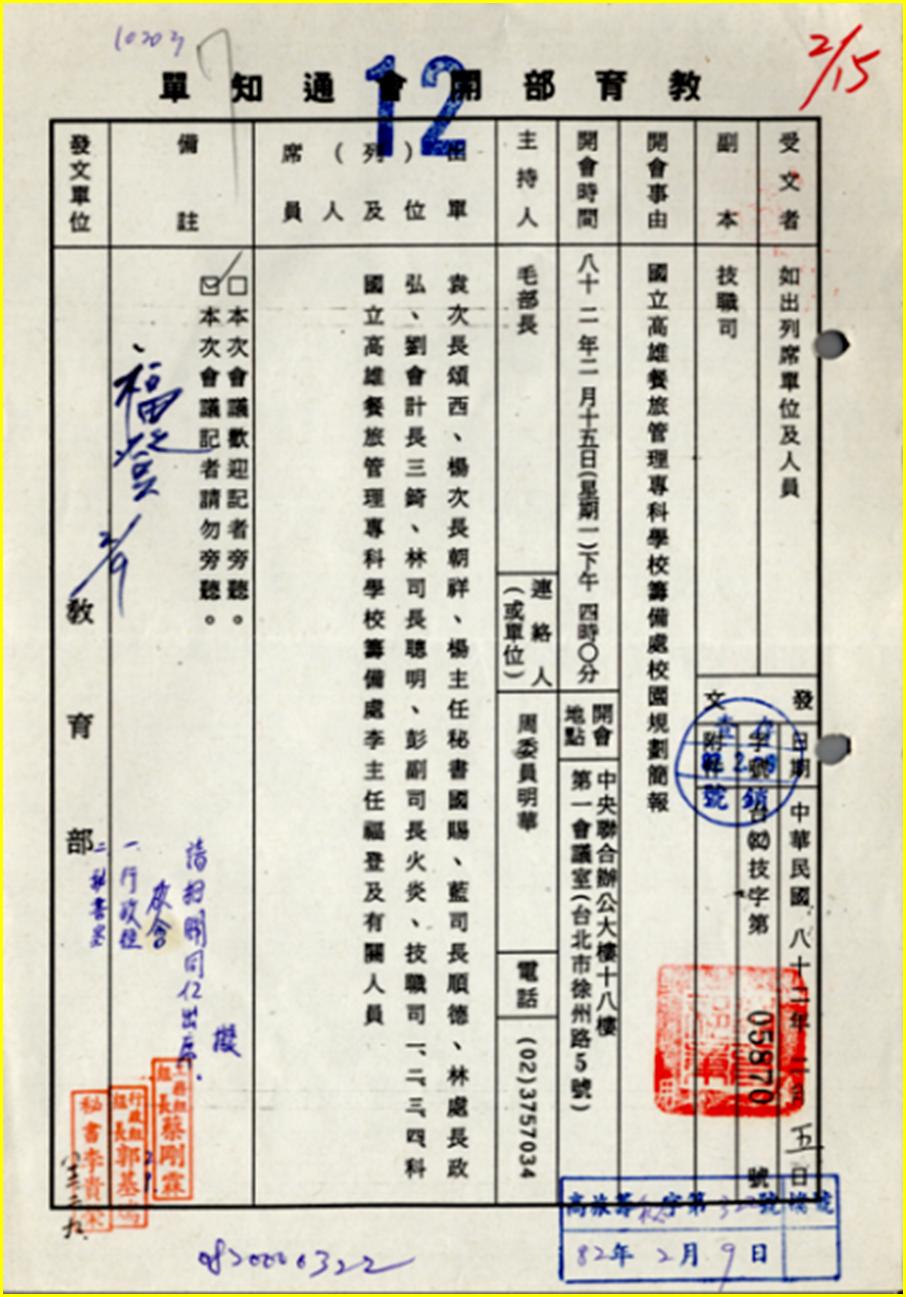 10203
7
2/15
12
教育部開會通知單
受文者
如出列席單位及人員
副本
技職司
發文
日期
中華民國八十二年二月五日
字號
台(82)技字第05870號
附件
開會事由
國立高雄餐旅管理專科學校籌備處校園規劃簡報
開會時間
八十二年二月十五日(星期一)下午四時〇分
開會地點
中央聯合辦公大樓十八樓
第一會議室(台北市徐州路5號)
主持人
毛部長
連絡人
(或單位)
周委員明華
電話
(02)3757034
出(列)席
單位及人員
袁次長頌西、楊次長朝祥、楊主任秘書國賜、藍司長順德、林處長政
弘、劉會計長三錡、林司長聰明、彭副司長火炎、技職司一、二、三、四、科
國立高雄餐旅管理專科學校籌備處李主任福登及有關人員
備註
□本次會議歡迎記者旁聽。
☑本次會議記者請勿旁聽。
發文單位
教育部
福登
2/9
擬
請相關同仁出席.
敬會
一行政組
二秘書室
組長蔡剛霖
行政組
組長郭基
秘書李貴榮
查
號銷
高旅籌秘字第322號
檔號
82年2月9日
0820000322